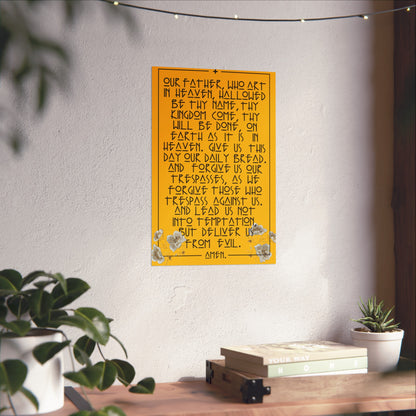 OUR FATHER, WHO ART
IN HEAVEN, HALLOWED
BE THY NAME, THY
KINGDOM COME, THY
WILL BE DONE, ON
EARTH AS IT IS IN
HEAVEN. GIVE US THIS
DAY OUR DAILY BREAD.
AND FORGIVE US OUR
TRESPASSES, AS WE
FORGIVE THOSE WHO
TRESPASS AGAINST US.
AND LEAD US NOT
INTO TEMPTATION,
BUT DELIVER US
FROM EVIL.
AMEN.
YOUR WAY
HOME